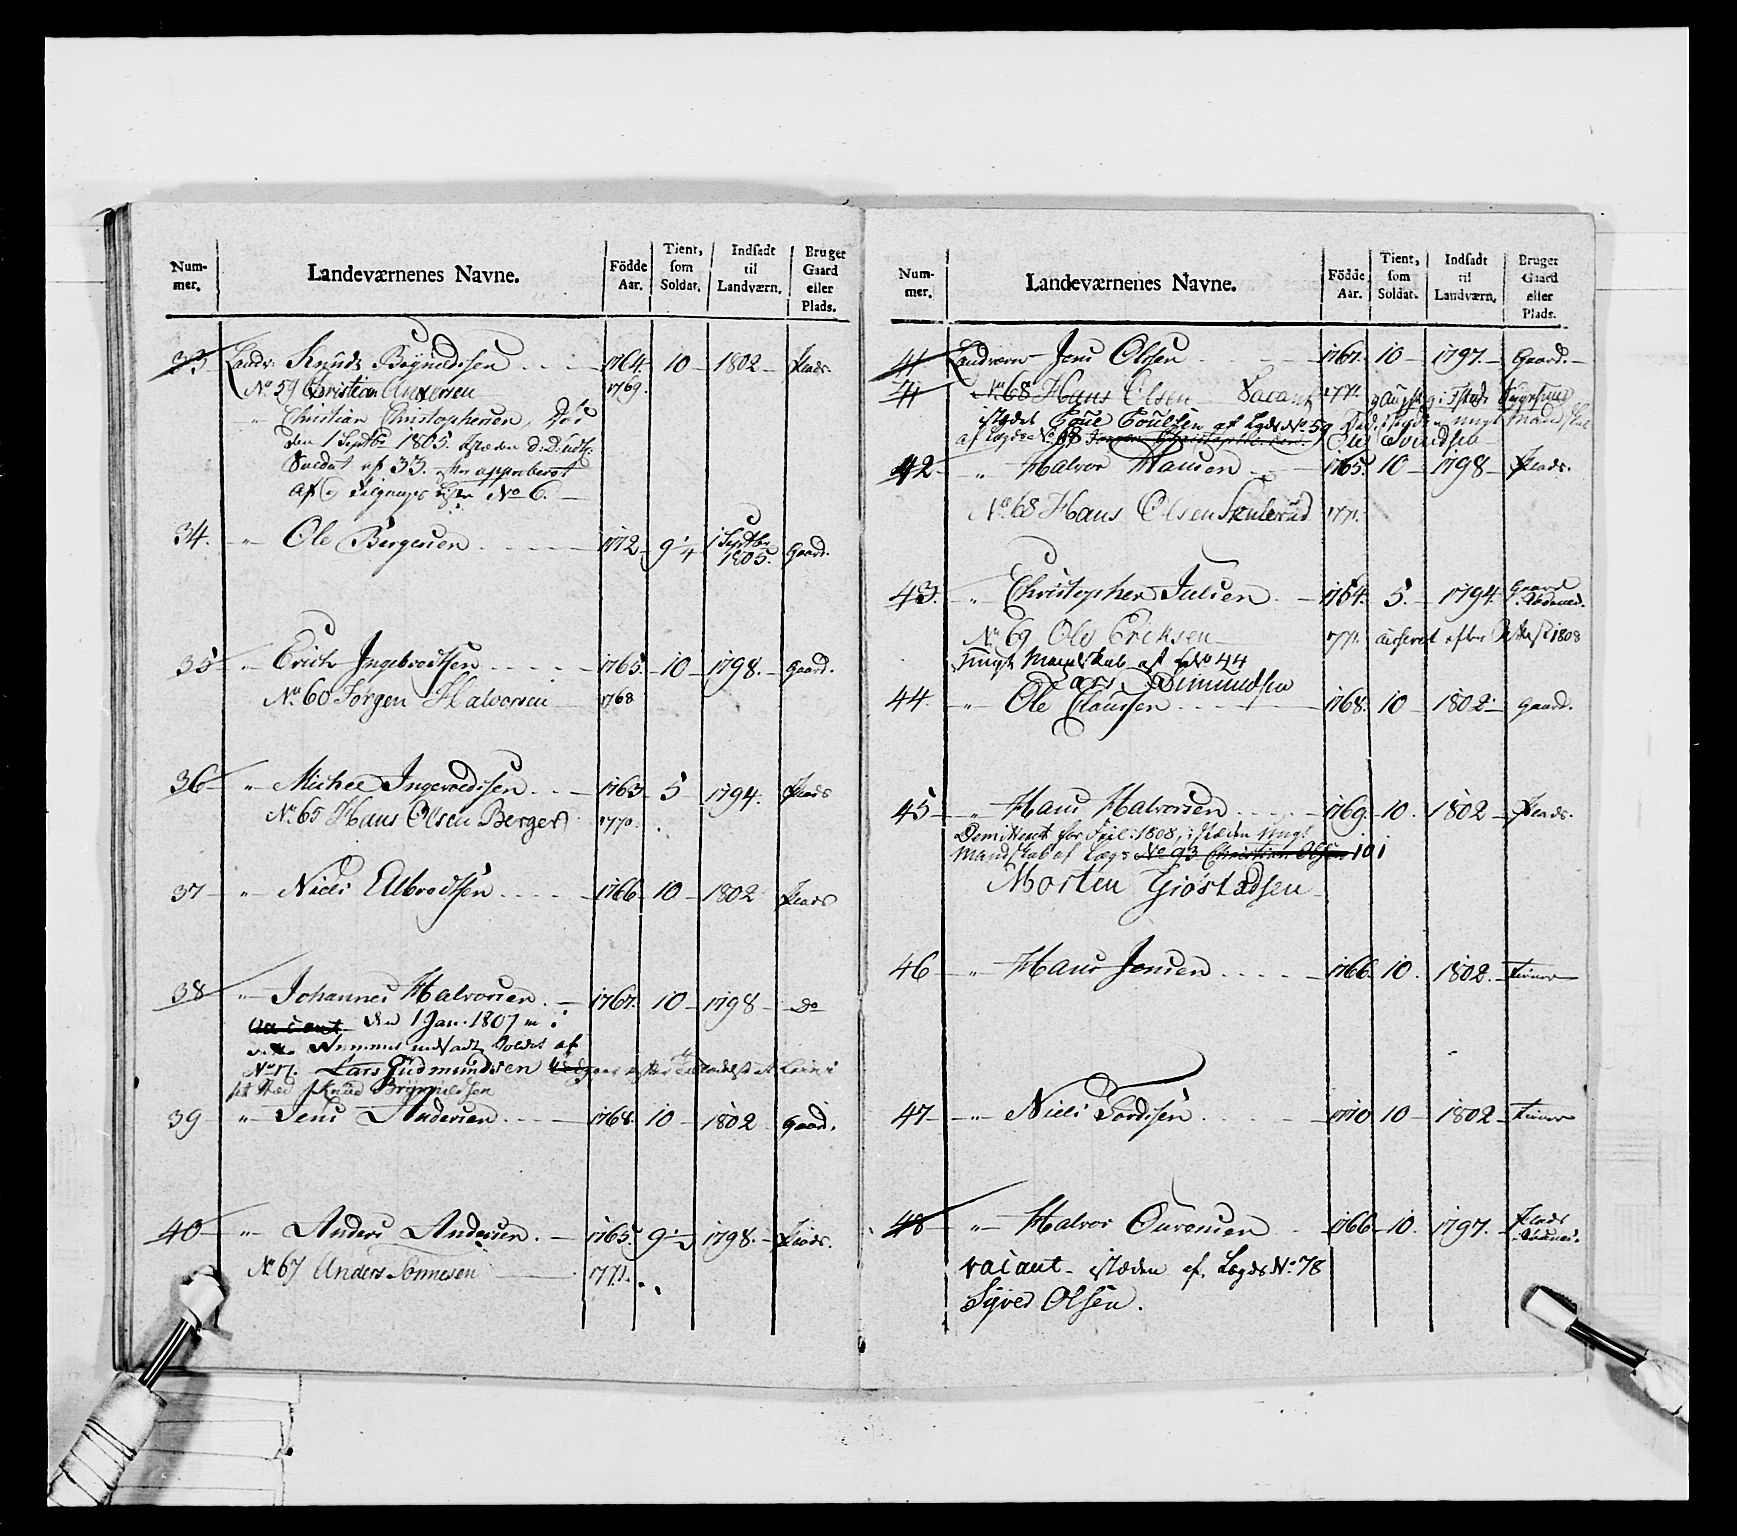 Num-mer. Landeværnenes Navne. Födde Aar. Tient, som Soldat. Indsadt til Landværn. Bruger Gaard eller Plads.
33 Landv: Knud Brÿnildssen 1764. 10 1802 Plads.
No. 59 Christian Andersen 1769.
" Christian Christophersen, død
den 1 Septbr 1805. isteden d. D. indt:
Soldat af 33. efter approberet
af No 6.
34. " Ole Bergersen 1772 9 1/4 1 Septbr 1805. Gaard.
35 " Erich Ingebrodtsen 1765. 10 1798. Gaard.
No. 60 Jørgen Halvorsen 1768
36 " Michel Ingevoldssen 1763 5 1794. Plads
No. 65 Hans Olsen Berger 1770.
37 " Niels Elbrodtsen 1766 10 1802 Plads
38 " Johannes Halvorsen. 1767. 10 1798 Do
vacant den 1 Jan. 1807 er i
dette Nummer indsadt Soldat af
No. 17. Lars Gudmundsen
sit Sted Knud Brÿnildsen
39 " Jens Andersen 1768. 10 1802 Gaard.
40 " Anders Andersen. 1765 9 1/2 1798. Plads.
No. 67 Anders Sonnesen 1771.
Num-mer. Landeværnenes Navne. Födde Aar. Tient, som Soldat. Indsadt til Landværn. Bruger Gaard eller Plads.
41 Landværn Jens Olssen 1767. 10 1797. Gaard.
41 No. 68 Hans Olsen Vacant 1771.
istædet Poulsen af Lægds No. 59
af Lægds No. 68 Jørgen Christophersen Svendsen
42 " Halvor Hansen 1765. 10 1798 Plads.
No. 68 Hans Olsen Skulerud 1771.
43. " Christopher Julsen. 1764. 5. 1794. Gaard
No. 69 Ole Eriksen 1771. 1808
nÿgt Mandskab af No 44
Lars Simundsen
44. " Ole Claussen 1768. 10 1802 Gaard.
45 " Hans Halvorsen 1769. 10. 1802 Plads.
Demitteret for Feil. 1808, isteden nÿgt
Mandskab af Lægd No 93 Christian Olsen 101
Morten Giøstadsen
46 " Hans Jensen 1766 10. 1802.
47 " Niels Tordssen 1770 10 1802
48 " Halvor Ouronsen 1766 10. 1797. Plads
vacant istæden af Lægds No. 78
Siver Olsen.